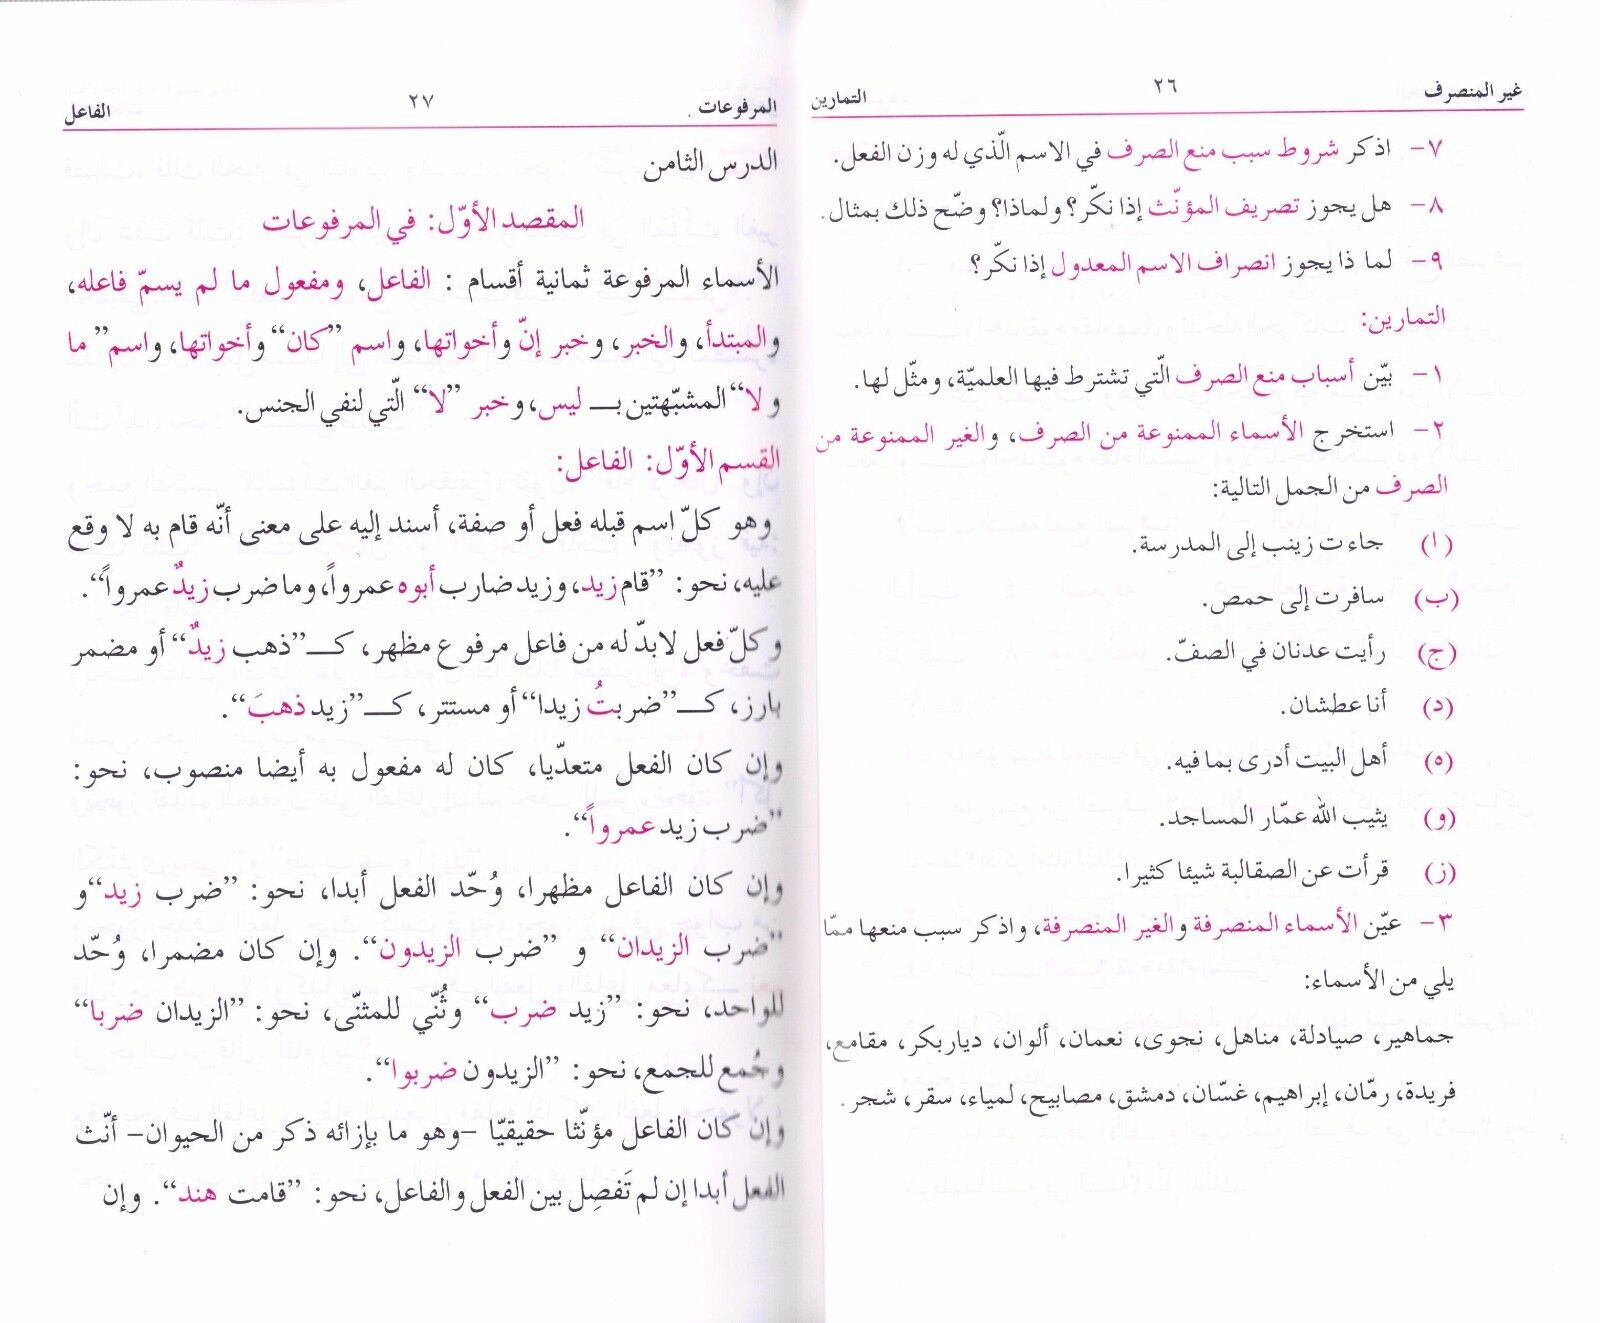 غير المنصرف ٢٦ التمارين
٧- اذكر شروط سبب منع الصرف في الاسم الّذي له وزن الفعل.
٨- هل يجوز تصريف المؤنّث إذا نكّر؟ ولماذا؟ وضّح ذلك بمثال.
٩- لما ذا يجوز انصراف الاسم المعدول إذا نكّر؟
التمارين:
١- بيّن أسباب منع الصرف الّتي تشترط فيها العلميّة، ومثّل لها.
٢- استخرج الأسماء الممنوعة من الصرف، والغير الممنوعة من
الصرف من الجمل التالية:
(ا) جاءت زينب إلى المدرسة.
(ب) سافرت إلى حمص.
(ج) رأيت عدنان في الصفّ.
(د) أنا عطشان.
(ه) أهل البيت أدرى بما فيه.
(و) يثيب الله عمّار المساجد.
(ز) قرأت عن الصقالبة شيئا كثيرا.
٣- عيّن الأسماء المنصرفة والغير المنصرفة، واذكر سبب منعها ممّا
يلي من الأسماء:
جماهير، صيادلة، مناهل، نجوى، نعمان، ألوان، دياربكر، مقامع،
فريدة، رمّان، إبراهيم، غسّان، دمشق، مصابيح، لمياء، سقر، شجر.
المرفوعات ٢٧ الفاعل
الدرس الثامن
المقصد الأوّل: في المرفوعات
الأسماء المرفوعة ثمانية أقسام : الفاعل، ومفعول ما لم يسمّ فاعله،
والمبتدأ، والخبر، وخبر إنّ وأخواتها، واسم ”كان“ وأخواتها، واسم ”ما
ولا“ المشبّهتين بـ ليس، وخبر ”لا“ الّتي لنفي الجنس.
القسم الأوّل: الفاعل:
وهو كلّ اسم قبله فعل أو صفة، أسند إليه على معنى أنّه قام به لا وقع
عليه، نحو: ”قام زيد، وزيد ضارب أبوه عمرواً، وما ضرب زيدٌ عمرواً“.
وكلّ فعل لابدّ له من فاعل مرفوع مظهر، كـ”ذهب زيدٌ“ أو مضمر
بارز، كـ”ضربتُ زيدا“ أو مستتر، كـ”زيد ذهبَ“.
وإن كان الفعل متعدّيا، كان له مفعول به أيضا منصوب، نحو:
”ضرب زيد عمرواً“.
وإن كان الفاعل مظهرا، وُحّد الفعل أبدا، نحو: ”ضرب زيد“ و
”ضرب الزيدان“ و ”ضرب الزيدون“. وإن كان مضمرا، وُحّد
للواحد، نحو: ”زيد ضرب“ وثُنّي للمثنّى، نحو: ”الزيدان ضربا“
وجُمع للجمع، نحو: ”الزيدون ضربوا“.
وإن كان الفاعل مؤنّثا حقيقيّا -وهو ما بإزائه ذكر من الحيوان- أنّث
الفعل أبدا إن لم تَفصِل بين الفعل والفاعل، نحو: ”قامت هند“. وإن